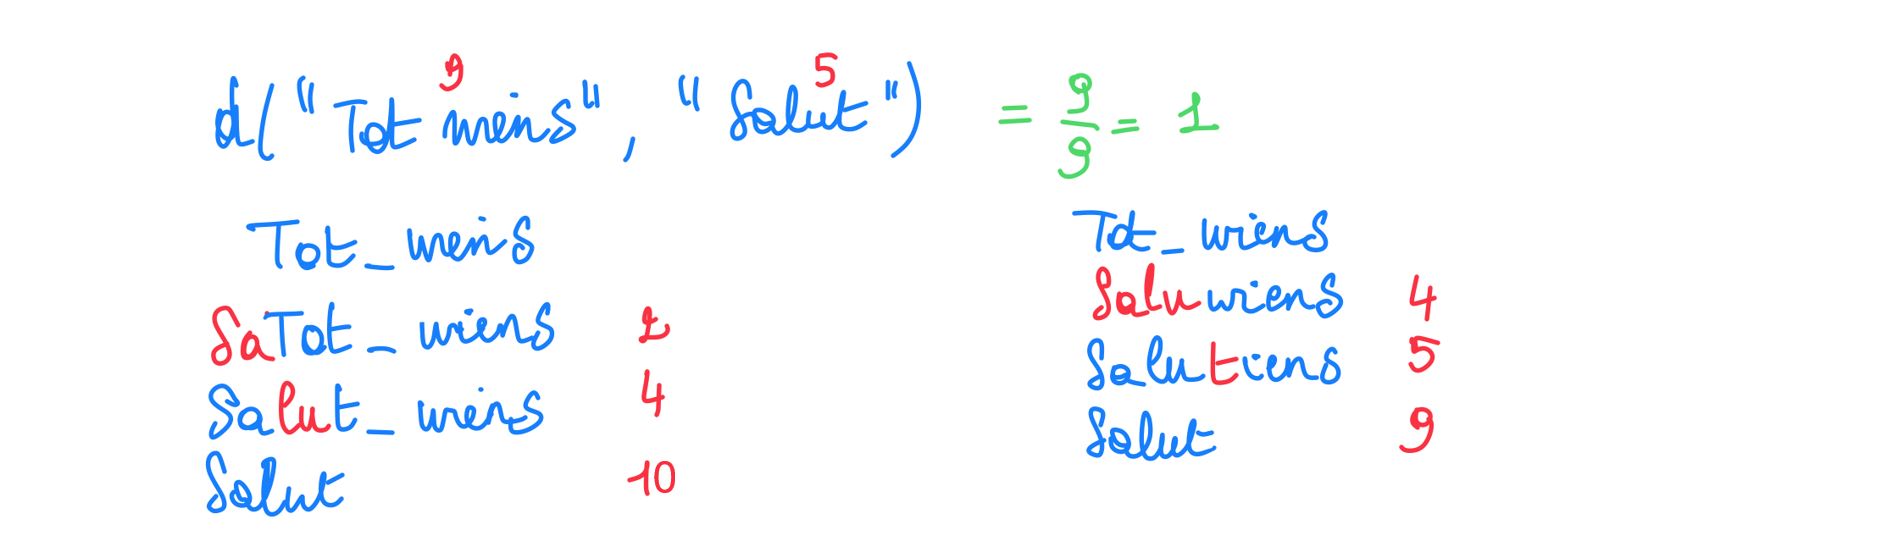 9 5
d("Tot wiens", "Salut") = 9/9 = 1
Tot_wiens
SaTot_wiens 2
Salut_wiens 4
Salut 10
Tot_wiens
Saluwiens 4
Salutiens 5
Salut 9